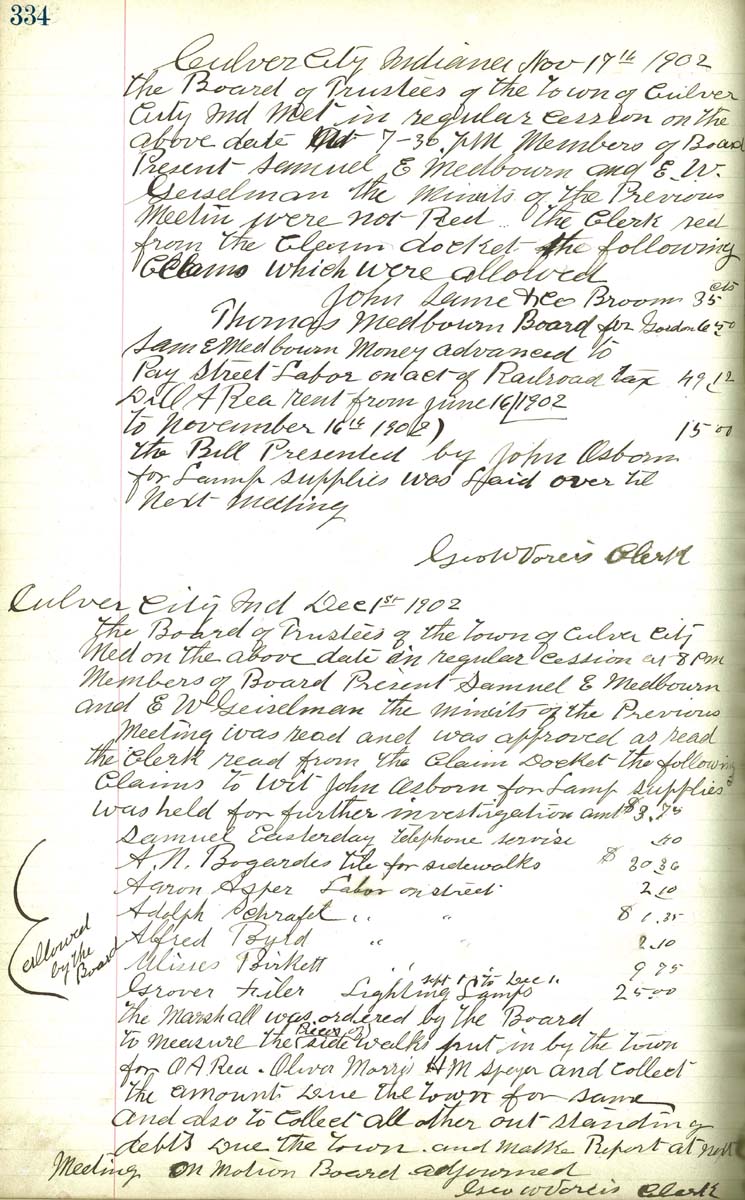 334
Culver City Indiana Nov 17th 1902
the Board of Trustees of the Town of Culver
City Ind Met in regular cession on the
above date At 7-30. PM Members of Board
Present Samuel E Medbourn and E. W.
Geiselman the minits of the Previous
Meetin were not Red .. the Clerk red
from the Claim docket the following
Claims which were allowed
John Same & Co Broom 35 cts
Thomas Medbourn Board for Gordon 6 50
Sam E Medbourn Money advanced to
Pay Street Labor on act of Railroad tax 49 12
Dill A Rea rent from June 16/1902
to November 16th 1902) 15 00
the Bill Presented by John Osborn
for Lamp supplies was Laid over til
Next meeting
Geo W Voreis Clerk
Culver City Ind Dec 1st 1902
the Board of Trustees of the Town of Culver City
Med on the above date in regular cession at 8 PM
Members of Board Present Samuel E Medbourn
and E W Geiselman the minits of the Previous
Meeting was read and was approved as read
the Clerk read from the Claim Docket the following
Claims to wit John Osborn for Lamp supplies
was held for further investigation amt $3.75
Samuel Easterday telephone servise .40
A. N. Bogardes tile for sidewalks $ 30 36
Aaron Asper Labor on street 2 10
Adolph Schrafet " " $ 1.35
Alfred Byrd " " 2.10
Ulisses Birkett " " 9 75
Grover Filer Lighting Lamps sept 1 to Dec 1. 25 00
allowed
by the
Board
the Marshall was ordered by the Board
to measure the Pieces of side walks put in by the town
for O A Rea . Oliver Morris H M Speyer and collect
the amounts Due the town for same
and also to collect all other out standing
debts Due the Town . and make Report at next
Meeting On Motion Board adjourned
Geo W Voreis Clerk